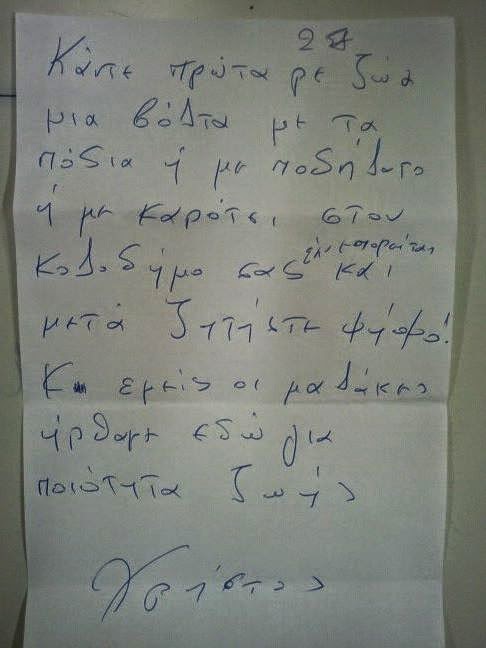 Κάντε πρώτα ρε ζώα
μια βόλτα με τα
πόδια ή με ποδήλατο
ή με καρότσι στον
κολοδήμο σας και
μετά ζητήστε ψήφο!
Κ εμείς οι μαλάκες
ήρθαμε εδώ για
ποιότητα ζωής
Χρήστος